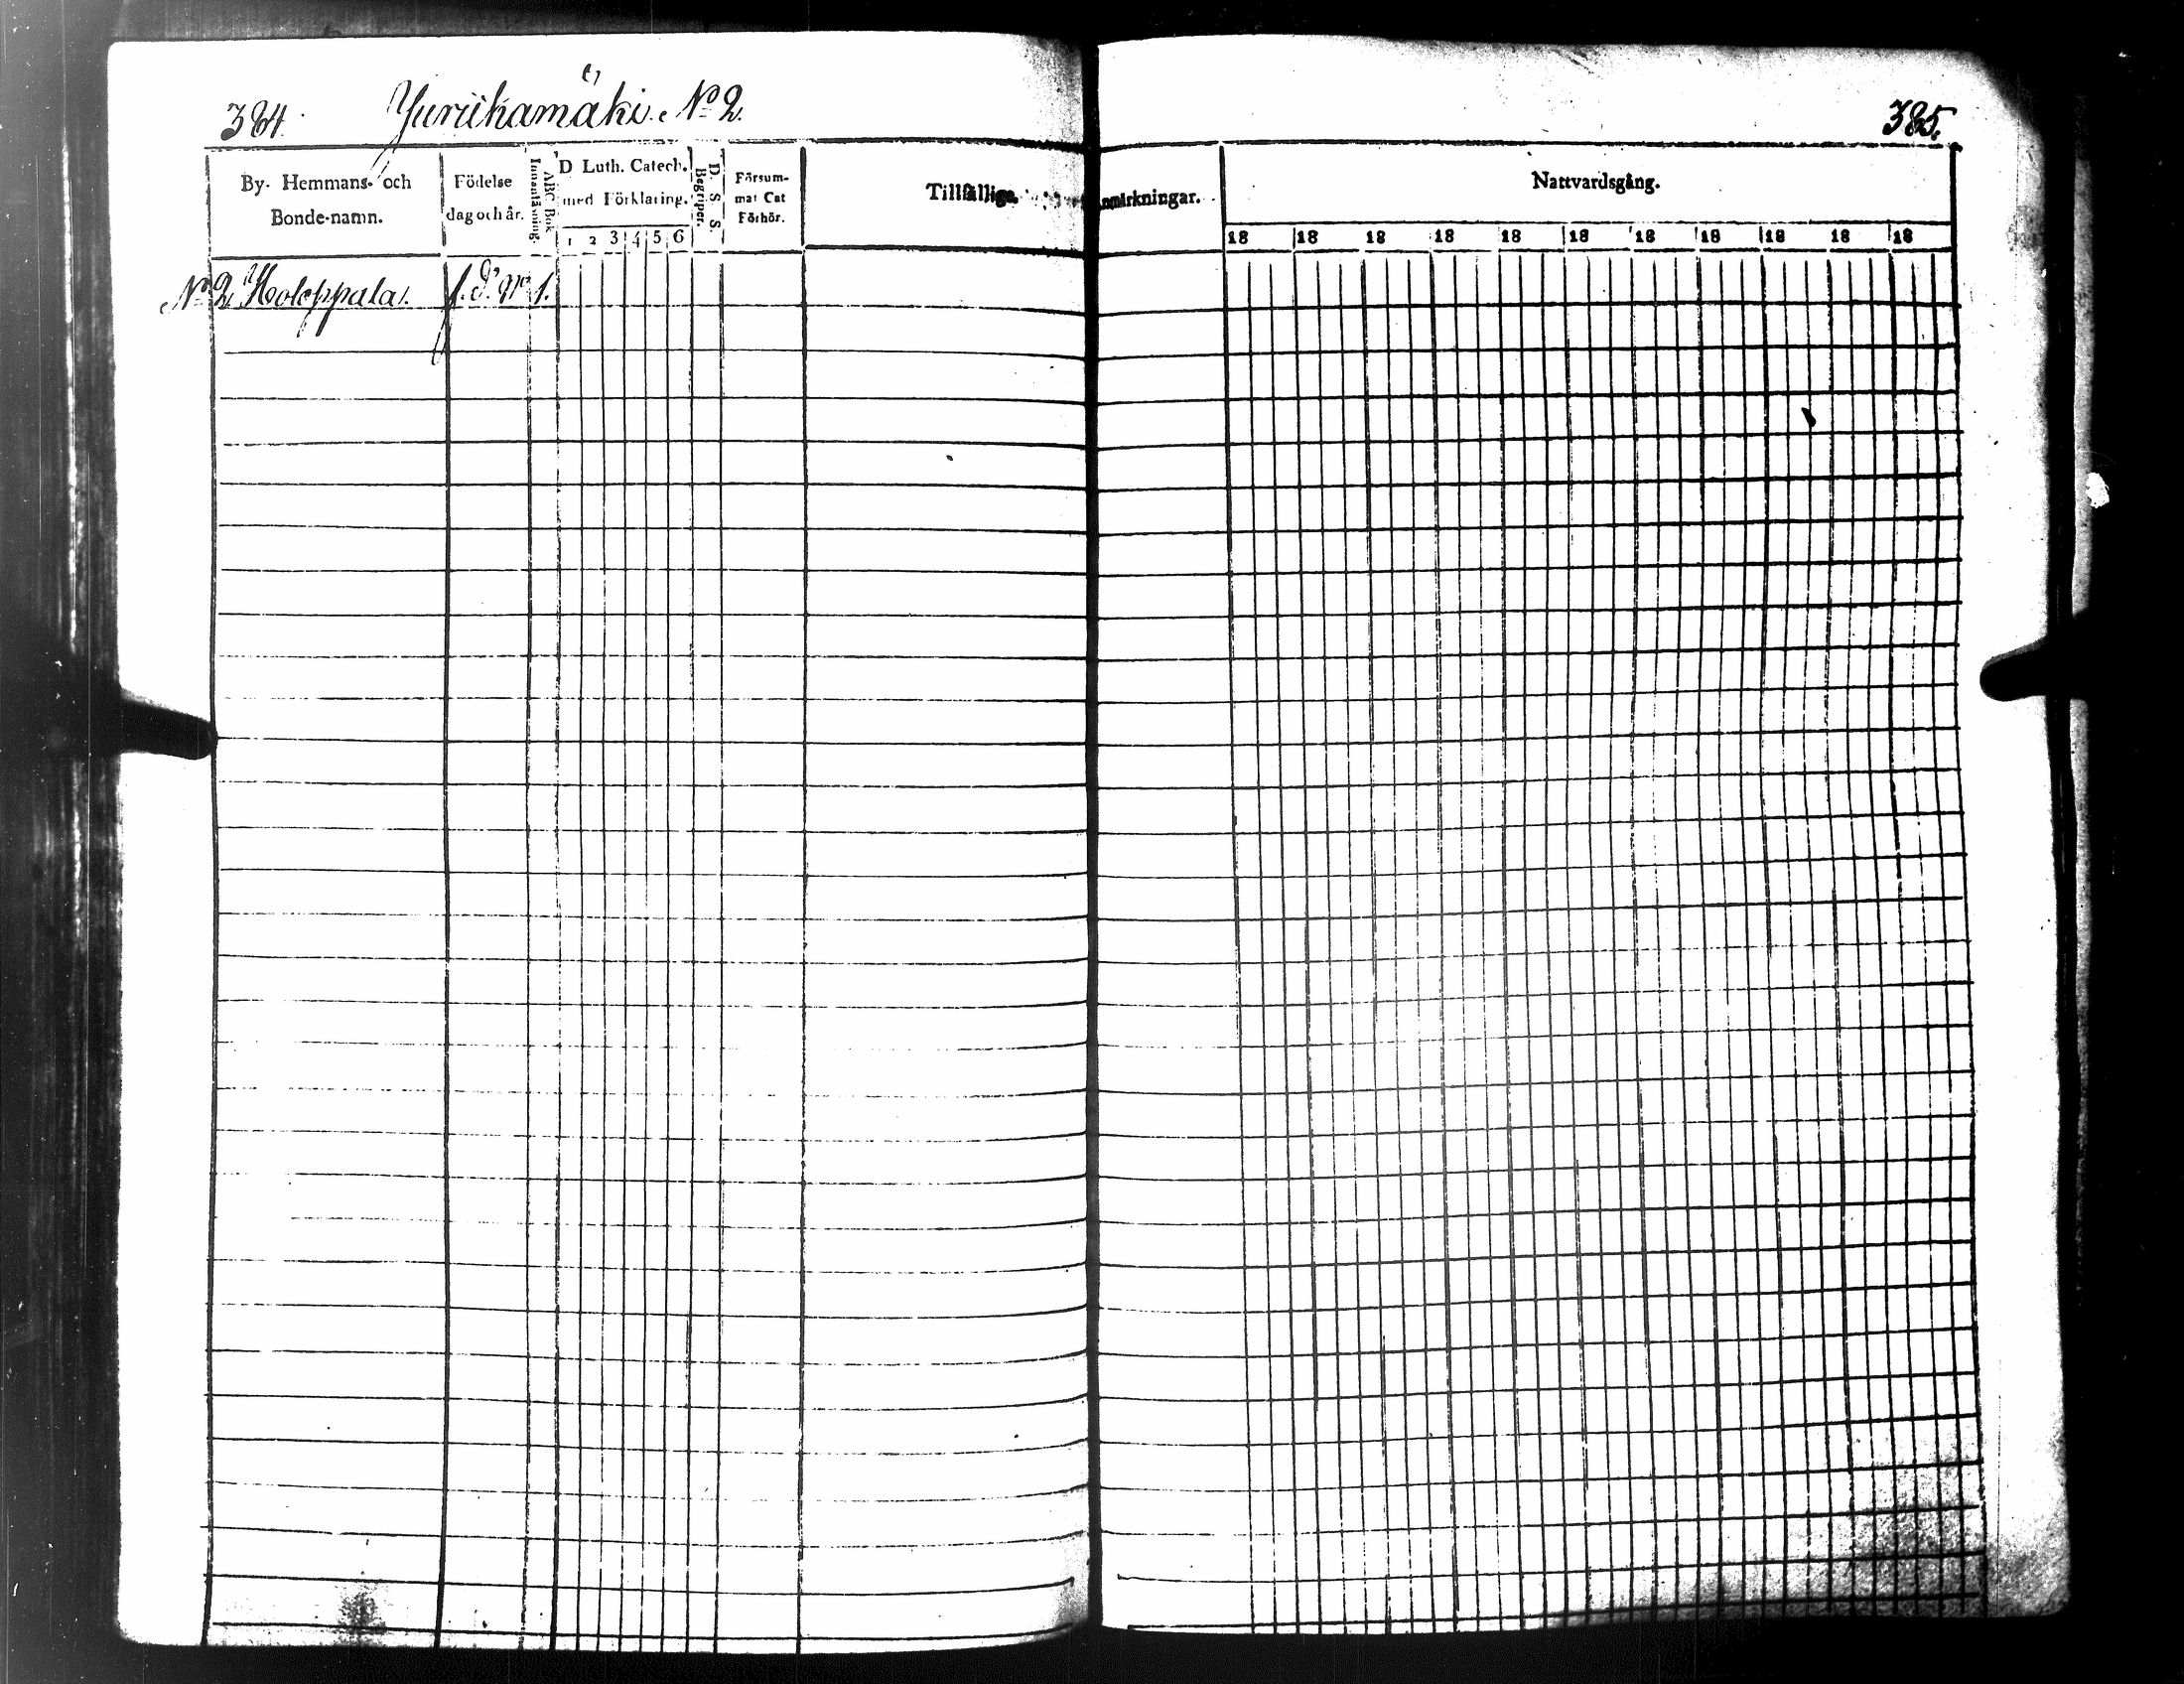 384. Yuriikamäki. No 2. 385.
By- Hemmans- och Bonde-namn.
Födelse dag och år.
Innanläsning.
ABC Bok
D Luth. Catech. med Förklaring.
1 2 3 4 5 6
D. S. S. Begriper.
Försum- mat Cat Förhör.
Tillfällige Anmärkningar.
Nattvardsgång.
18 18 18 18 18 18 18 18 18 18 18
No 2 Holoppala. No 1.